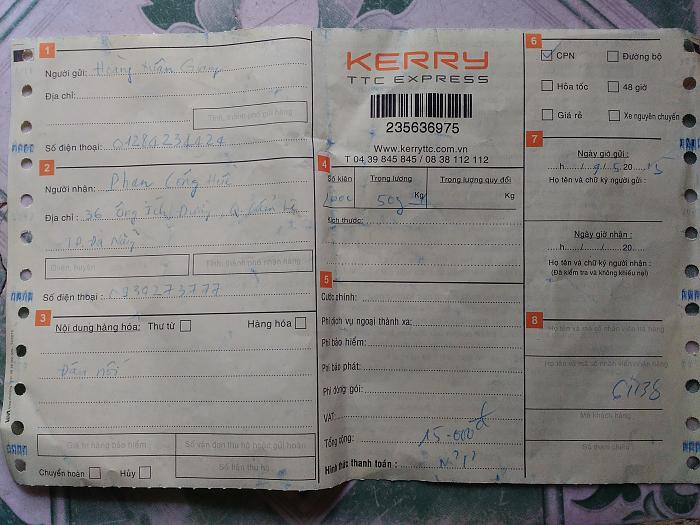 1
Người gửi: Hoàng Xuân Giang
Địa chỉ:
Tỉnh, thành phố gửi hàng
Số điện thoại: 01284231424
2
Người nhận: Phan Công Huế
Địa chỉ: 36 Ông Ích Đường Q Cẩm Lệ
TP. Đà Nẵng
Quận, huyện
Tỉnh, thành phố nhận hàng
Số điện thoại: 0930273777
3
Nội dung hàng hóa: Thư từ Hàng hóa
Đầu nối
Giá trị hàng bảo hiểm
Số vận đơn thu hộ hoặc gửi hoàn
Số tiền thu hộ
Chuyển hoàn Hủy
KERRY
TTC EXPRESS
235636975
Www.kerryttc.com.vn
T 04 39 845 845 / 08 38 112 112
4
Số kiện
Trọng lượng
Trọng lượng quy đổi
50g Kg
Kg
Kích thước:
5
Cước chính:
Phí dịch vụ ngoại thành xa:
Phí bảo hiểm:
Phí bảo phát:
Phí đóng gói:
VAT:
Tổng cộng: 15.000đ
Hình thức thanh toán:
6
CPN Đường bộ
Hỏa tốc 48 giờ
Giá rẻ Xe nguyên chuyến
7
Ngày giờ gửi:
h 9/5 2015
Họ tên và chữ ký người gửi:
Ngày giờ nhận:
h / / 20
Họ tên và chữ ký người nhận:
(Đã kiểm tra và không khiếu nại)
8
Họ tên và mã số nhân viên trả hàng
Họ tên và mã số nhân viên nhận hàng
Mã khách hàng
Số tham chiếu